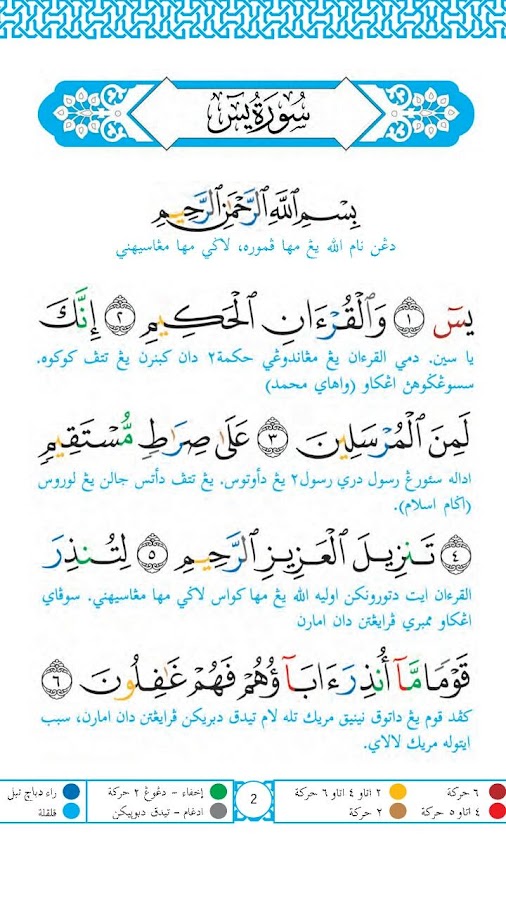 سُورَةُ يسٓ
بِسْمِ ٱللَّهِ ٱلرَّحْمَٰنِ ٱلرَّحِيمِ
دڠن نام الله يڠ مها ڤموره، لاݢي مها مڠاسيهني
يسٓ ١ وَٱلْقُرْءَانِ ٱلْحَكِيمِ ٢ إِنَّكَ
يا سين. دمي القرءان يڠ مڠاندوڠي حكمة٢ دان كبنرن يڠ تتڤ كوكوه.
سسوڠݢوهڽ اڠكاو (واهاي محمد)
لَمِنَ ٱلْمُرْسَلِينَ ٣ عَلَىٰ صِرَٰطٍ مُّسْتَقِيمٍ
اداله سئورڠ رسول دري رسول٢ يڠ دأوتوس. يڠ تتڤ دأتس جالن يڠ لوروس
(اݢام اسلام).
٤ تَنزِيلَ ٱلْعَزِيزِ ٱلرَّحِيمِ ٥ لِتُنذِرَ
القرءان ايت دتورونكن اوليه الله يڠ مها كواس لاݢي مها مڠاسيهني. سوڤاي
اڠكاو ممبري ڤرايڠتن دان امارن
قَوْمًا مَّآ أُنذِرَ ءَابَآؤُهُمْ فَهُمْ غَٰفِلُونَ ٦
كڤد قوم يڠ داتوق نينيق مريك تله لام تيدق دبريكن ڤرايڠتن دان امارن، سبب
ايتوله مريك لالاي.
٦ حركة
٤ اتاو ٥ حركة
٢ اتاو ٤ اتاو ٦ حركة
٢ حركة
2
إخفاء – دڠوڠ ٢ حركة
ادغام – تيدق دبوڽيكن
راء دباچ تبل
قلقلة